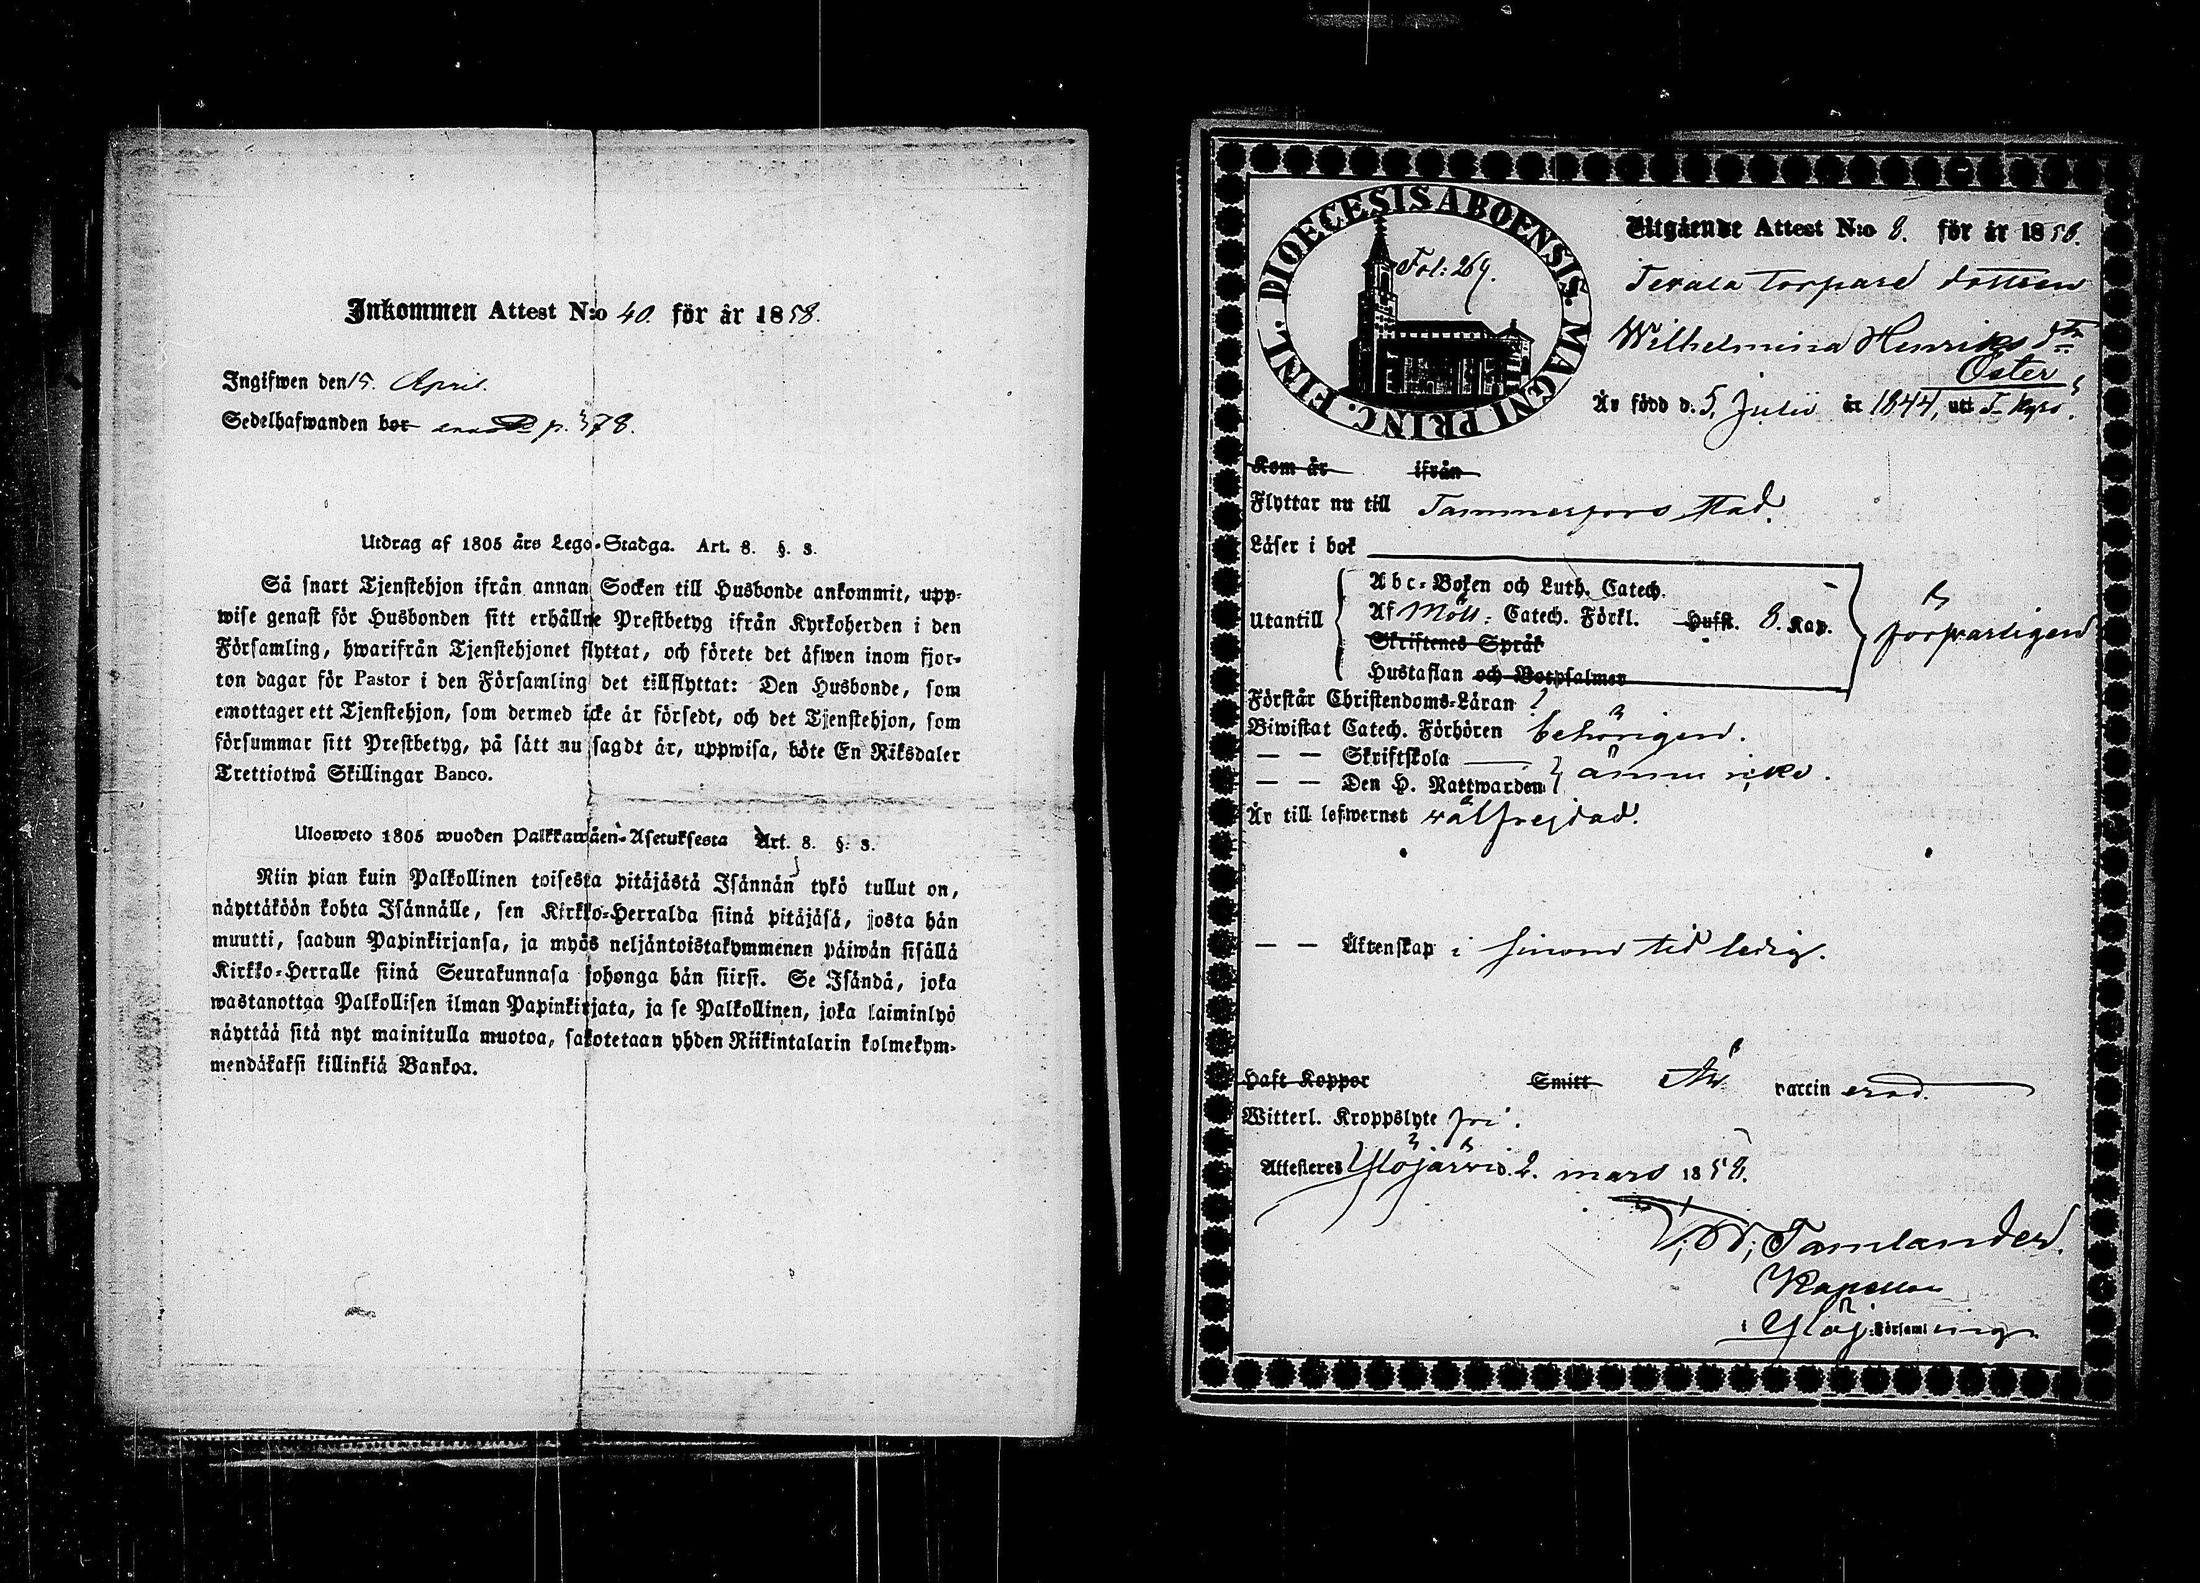 Inkommen Attest N:o 40. för år 1858.
Ingifwen den 15. April.
Sedelhafwanden bor p. 378.
Utdrag af 1805 års Lego-Stadga. Art. 8. §. 3.
Så snart Tjenstehjon ifrån annan Socken till Husbonde ankommit, upp-
wise genast för Husbonden sitt erhållne Prestbetyg ifrån Kyrkoherden i den
Församling, hwarifrån Tjenstehjonet flyttat, och förete det äfwen inom fjor-
ton dagar för Pastor i den Församling det tillflyttat: Den Husbonde, som
emottager ett Tjenstehjon, som dermed icke är försedt, och det Tjenstehjon, som
försummar sitt Prestbetyg, på sätt nu sagdt är, uppwisa, böte En Riksdaler
Trettiotwå Skillingar Banco.
Ulosweto 1805 wuoden Palkkawäen-Asetuksesta Art. 8. §. 3.
Niin pian kuin Palkollinen toisesta pitäjästä Isännän tykö tullut on,
näyttäköön kohta Isännälle, sen Kirkko-Herralda siinä pitäjäsä, josta hän
muutti, saadun Papinkirjansa, ja myös neljäntoistakymmenen päiwän sisällä
Kirkko-Herralle siinä Seurakunnasa johonga hän siirsi. Se Isändä, joka
wastanottaa Palkollisen ilman Papinkirjata, ja se Palkollinen, joka laiminlyö
näyttää sitä nyt mainitulla muotoa, sakotetaan yhden Riikintalarin kolmekym-
mendäkaksi killinkiä Bankoa.
DIOECESIS ABOENSIS. MAGNI PRINC. FINL.
Fol: 269.
Utgående Attest N:o 8. för år 1858.
Torpare dottren
Wilhelmina Henriks dtr
Öster
Är född d. 5. Julii år 1844, uti T. Kyro.
Kom år ifrån
Flyttar nu till Tammerfors stad.
Läser i bok
Utantill
Abc-Boken och Luth. Catech.
Af Möll: Catech. Förkl. Hufst. 8. Kap.
Skriftenes Språk
Hustaflan och Botpsalmer
försvarligen
Förstår Christendoms-Läran
Biwistat Catech. Förhören behörigen.
— — Skriftskola
— — Den H. Nattwarden ännu icke.
Är till lefwernet wälfrejdad.
— — Äktenskap i sinom tid ledig.
Haft Koppor Smitt Är vaccinerad.
Witterl. Kroppslyte fri.
Attesteres Ylöjärwi d. 2. mars 1858.
Tamlander.
Kapellan
i Ylöj: Församling.